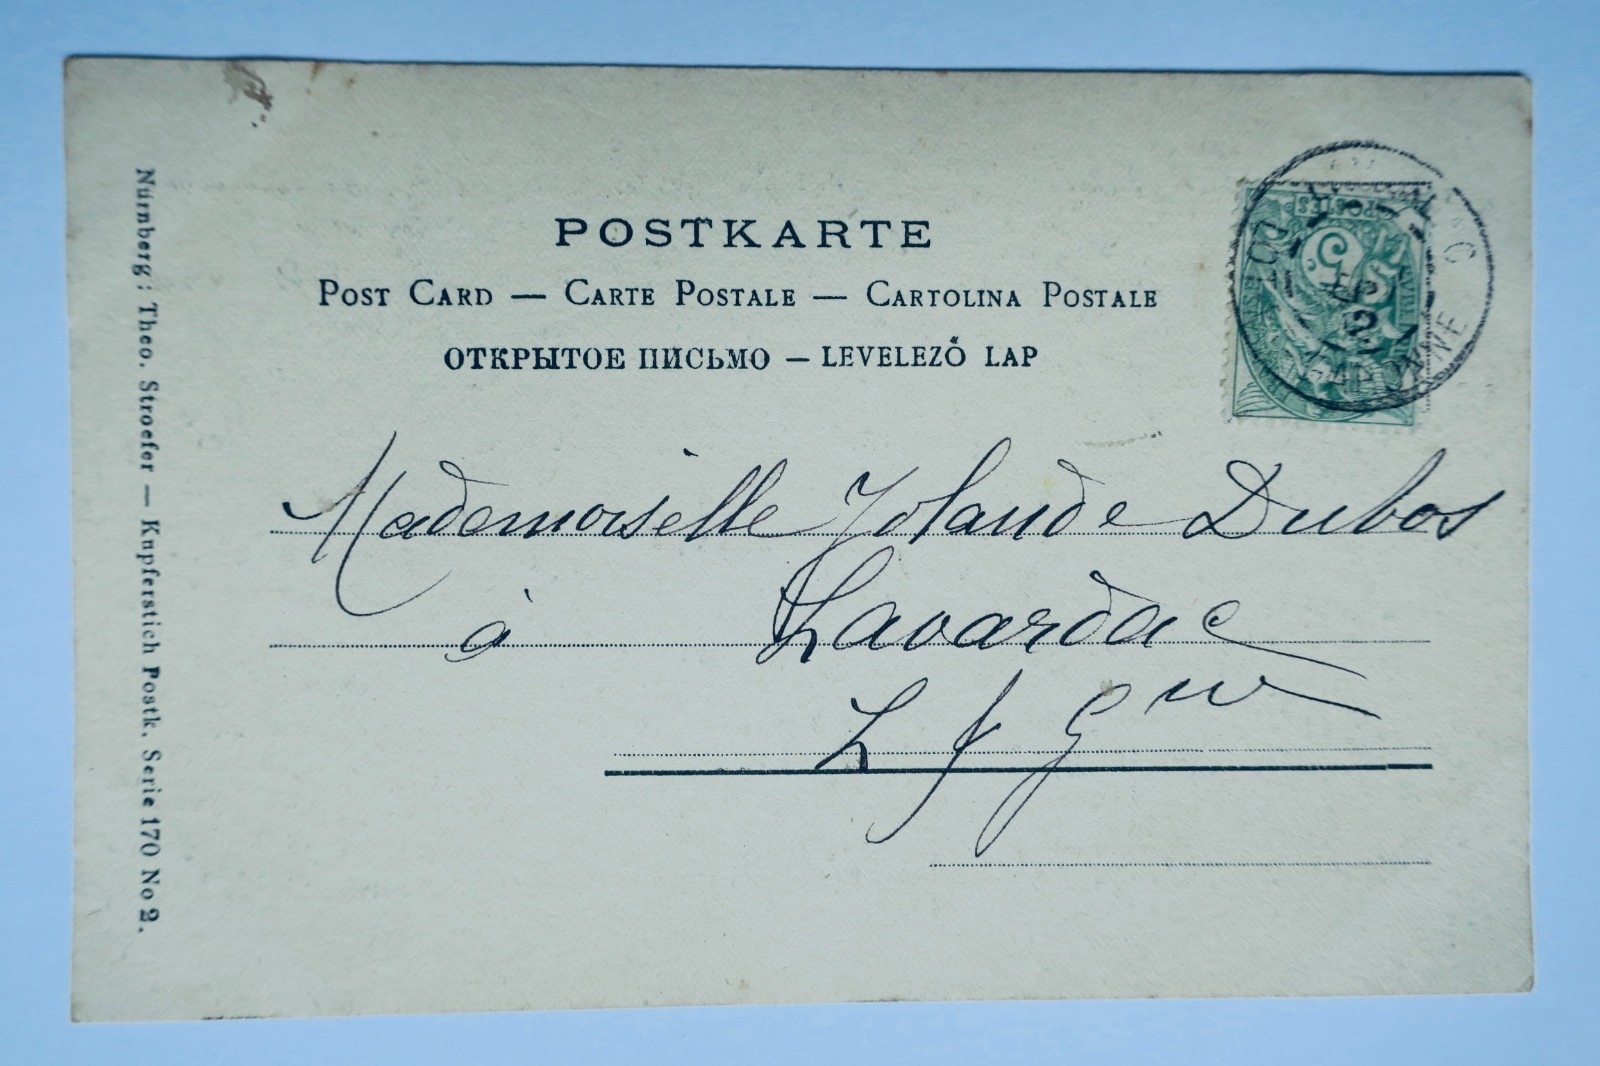 POSTKARTE
POST CARD — CARTE POSTALE — CARTOLINA POSTALE
ОТКРЫТОЕ ПИСЬМО — LEVELEZŐ LAP
Mademoiselle Yolande Dubos
à Lavardac
L & G
Nürnberg: Theo. Stroefer — Kupferstich Postk. Serie 170 No 2.
POSTES
5
GARONNE